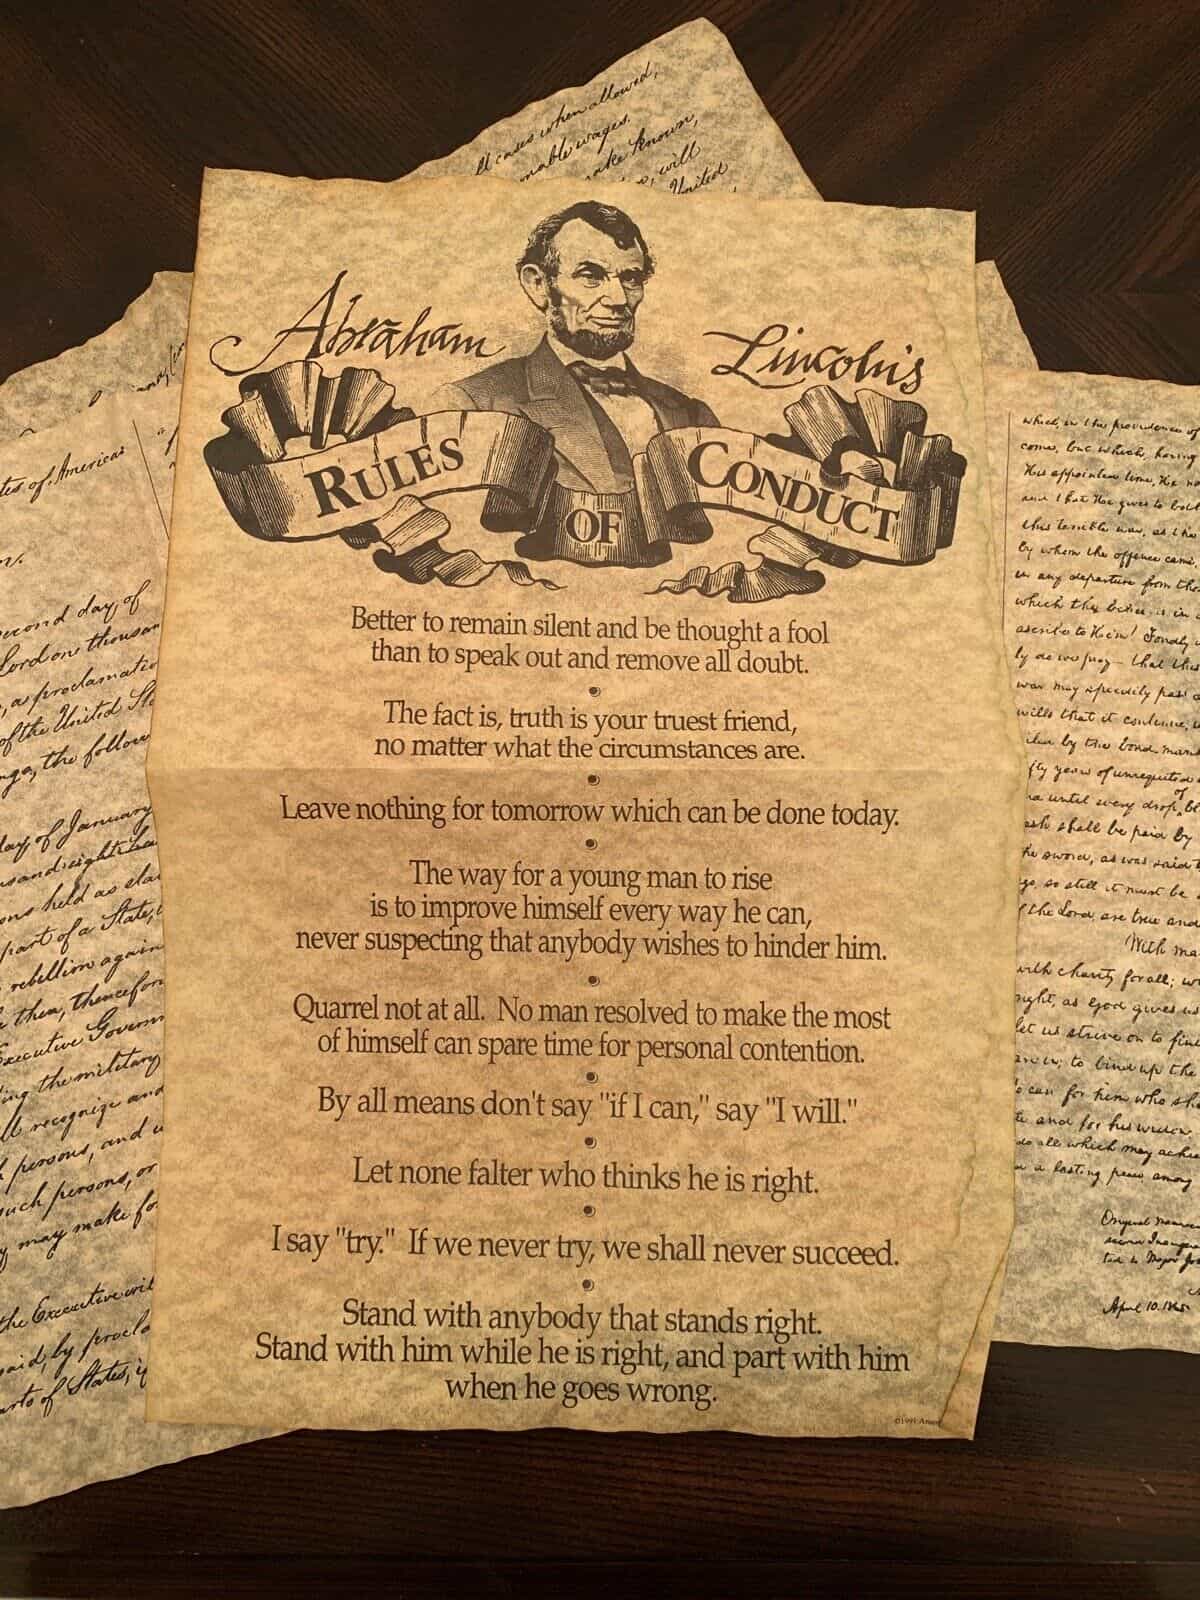 ll cases when allowed,
onable wages.
ake known,
will
United
Abraham Lincoln's
RULES OF CONDUCT
Better to remain silent and be thought a fool
than to speak out and remove all doubt.
The fact is, truth is your truest friend,
no matter what the circumstances are.
Leave nothing for tomorrow which can be done today.
The way for a young man to rise
is to improve himself every way he can,
never suspecting that anybody wishes to hinder him.
Quarrel not at all. No man resolved to make the most
of himself can spare time for personal contention.
By all means don't say "if I can," say "I will."
Let none falter who thinks he is right.
I say "try." If we never try, we shall never succeed.
Stand with anybody that stands right.
Stand with him while he is right, and part with him
when he goes wrong.
tes of America:
econd day, of
Lord one thousan
, a proclamatio
of the United Sta
ngs, the follow
day of January
usand eight hu
ons held as sla
part of a State,
rebellion again
then, thencefor
Executive Govern
ing the military
ll recognize and
persons, and
such persons, or
may make fo
the Executive wil
said, by procla
arts of States, if
which, in the providence of
come, but which, having
His appointed time, He
and that He gives to both
this terrible war, as the
by whom the offence came,
in any departure from tho
which the
ascribe to Him? Fondly
ly do we pray— that this
war may speedily pass a
wills that it continue,
by the bond-man
fty years of unrequited
until every drop of bl
ash shall be paid by
he sword, as was said
go, so still it must be
f the Lord, are true and
With ma
with charity for all; wi
right, as God gives us
let us strive on to fini
in; to bind up the
to care for him who sh
and for his widow
do all which may achie
a lasting peace among
Original manu
second Inaug
to Major Jo
April 10. 1865